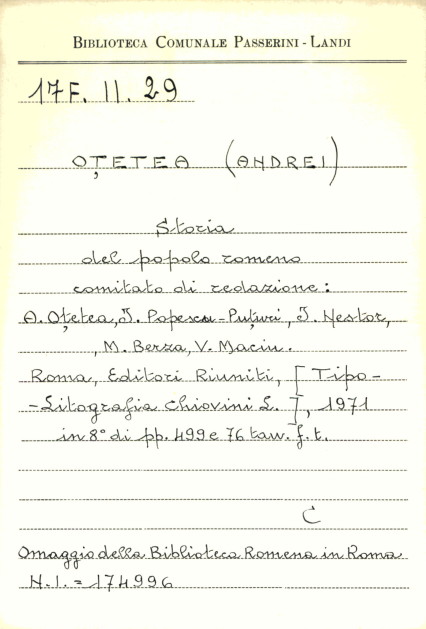 BIBLIOTECA COMUNALE PASSERINI - LANDI
17F. II. 29
OȚETEA (ANDREI)
Storia
del popolo romeno
comitato di redazione:
A. Oțetea, I. Popescu-Puțuri, I. Nestor,
, M. Berza, V. Maciu.
Roma, Editori Riuniti, [Tipo-
-Litografia Chiovini L.], 1971
in 8° di pp. 499 e 76 tav. f. t.
C
Omaggio della Biblioteca Romena in Roma
N.I. = 174996